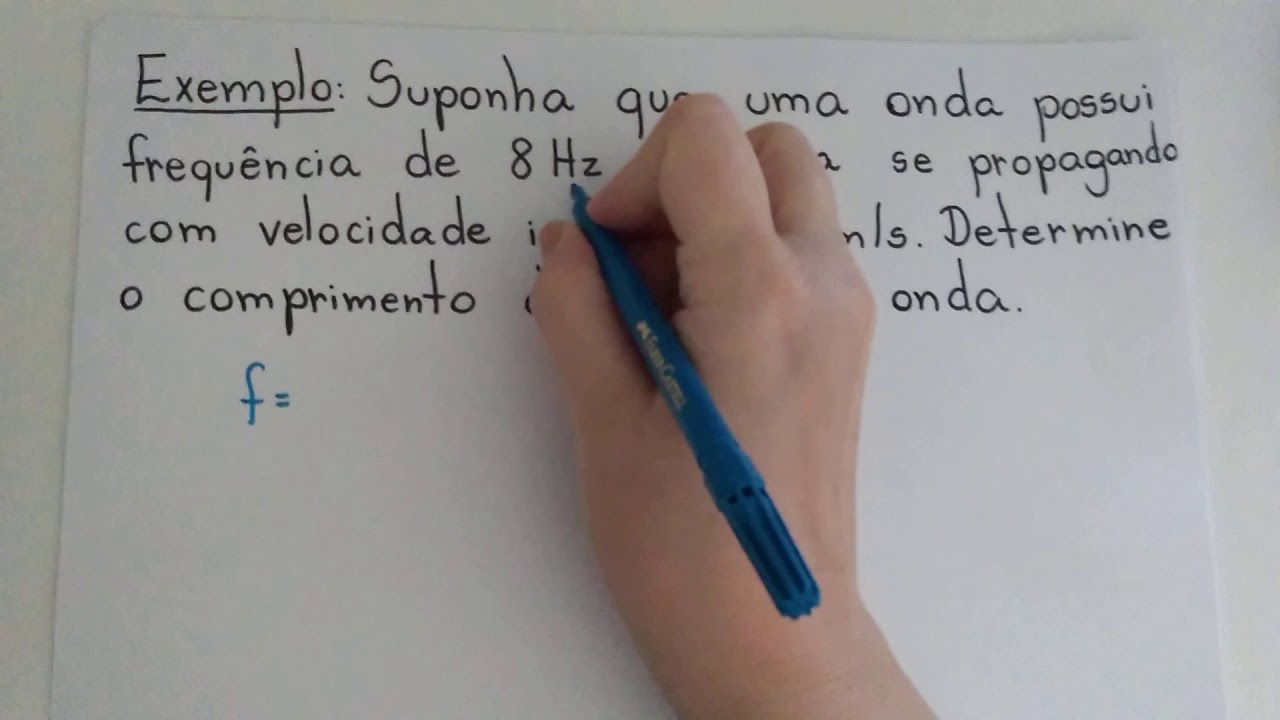 Exemplo: Suponha que uma onda possui
frequência de 8 Hz se propagando
com velocidade m/s. Determine
o comprimento onda.
f =
Faber-Castell